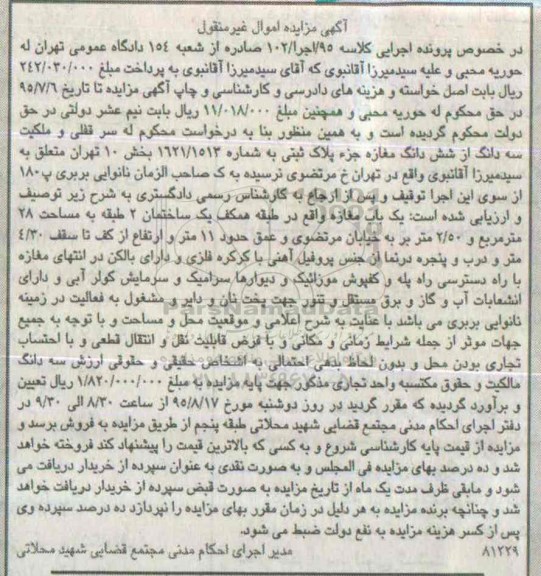 آگهی مزایده اموال غیرمنقول
در خصوص پرونده اجرایی کلاسه ۹۵/اجرا/۱۰۲ صادره از شعبه ۱۵۴ دادگاه عمومی تهران له
حوریه محبی و علیه سیدمیرزا آقانبوی که آقای سیدمیرزا آقانبوی به پرداخت مبلغ ۲۴۲/۰۳۰/۰۰۰
ریال بابت اصل خواسته و هزینه های دادرسی و کارشناسی و چاپ آگهی مزایده تا تاریخ ۹۵/۷/۶
در حق محکوم له حوریه محبی و همچنین مبلغ ۱۱/۰۱۸/۰۰۰ ریال بابت نیم عشر دولتی در حق
دولت محکوم گردیده است و به همین منظور بنا به درخواست محکوم له سر قفلی و ملکیت
سه دانگ از شش دانگ مغازه جزء پلاک ثبتی به شماره ۱۶۲۱/۱۵۱۳ بخش ۱۰ تهران متعلق به
سیدمیرزا آقانبوی واقع در تهران خ مرتضوی نرسیده به ک صاحب الزمان نانوایی بربری پ۱۸۰
از سوی این اجرا توقیف و پس از ارجاع به کارشناس رسمی دادگستری به شرح زیر توصیف
و ارزیابی شده است: یک باب مغازه واقع در طبقه همکف یک ساختمان ۲ طبقه به مساحت ۲۸
مترمربع و ۲/۵۰ متر بر به خیابان مرتضوی و عمق حدود ۱۱ متر و ارتفاع از کف تا سقف ۴/۳۰
متر و درب و پنجره درنما از جنس پروفیل آهنی با کرکره فلزی و دارای بالکن در انتهای مغازه
با راه دسترسی راه پله و کفپوش موزائیک و دیوارها سرامیک و سرمایش کولر آبی و دارای
انشعابات آب و گاز و برق مستقل و تنور جهت پخت نان و دایر و مشغول به فعالیت در زمینه
نانوایی بربری می باشد با عنایت به شرح اعلامی و موقعیت محل و مساحت و با توجه به جمیع
جهات موثر از جمله شرایط زمانی و مکانی و با فرض قابلیت نقل و انتقال قطعی و با احتساب
تجاری بودن محل و بدون لحاظ بدهی احتمالی به اشخاص حقیقی و حقوقی ارزش سه دانگ
مالکیت و حقوق مکتسبه واحد تجاری مذکور جهت پایه مزایده به مبلغ ۱/۸۲۰/۰۰۰/۰۰۰ ریال تعیین
و برآورد گردیده که مقرر گردید در روز دوشنبه مورخ ۹۵/۸/۱۷ از ساعت ۸/۳۰ الی ۹/۳۰ در
دفتر اجرای احکام مدنی مجتمع قضایی شهید محلاتی طبقه پنجم از طریق مزایده به فروش برسد و
مزایده از قیمت پایه کارشناسی شروع و به کسی که بالاترین قیمت را پیشنهاد کند فروخته خواهد
شد و ده درصد بهای مزایده فی المجلس و به صورت نقدی به عنوان سپرده از خریدار دریافت می
شود و مابقی ظرف مدت یک ماه از تاریخ مزایده به صورت قبض سپرده از خریدار دریافت خواهد
شد و چنانچه برنده مزایده به هر دلیل در زمان مقرر بهای مزایده را نپردازد ده درصد سپرده وی
پس از کسر هزینه مزایده به نفع دولت ضبط می شود.
۸۱۲۲۹ مدیر اجرای احکام مدنی مجتمع قضایی شهید محلاتی
ParsNamadData